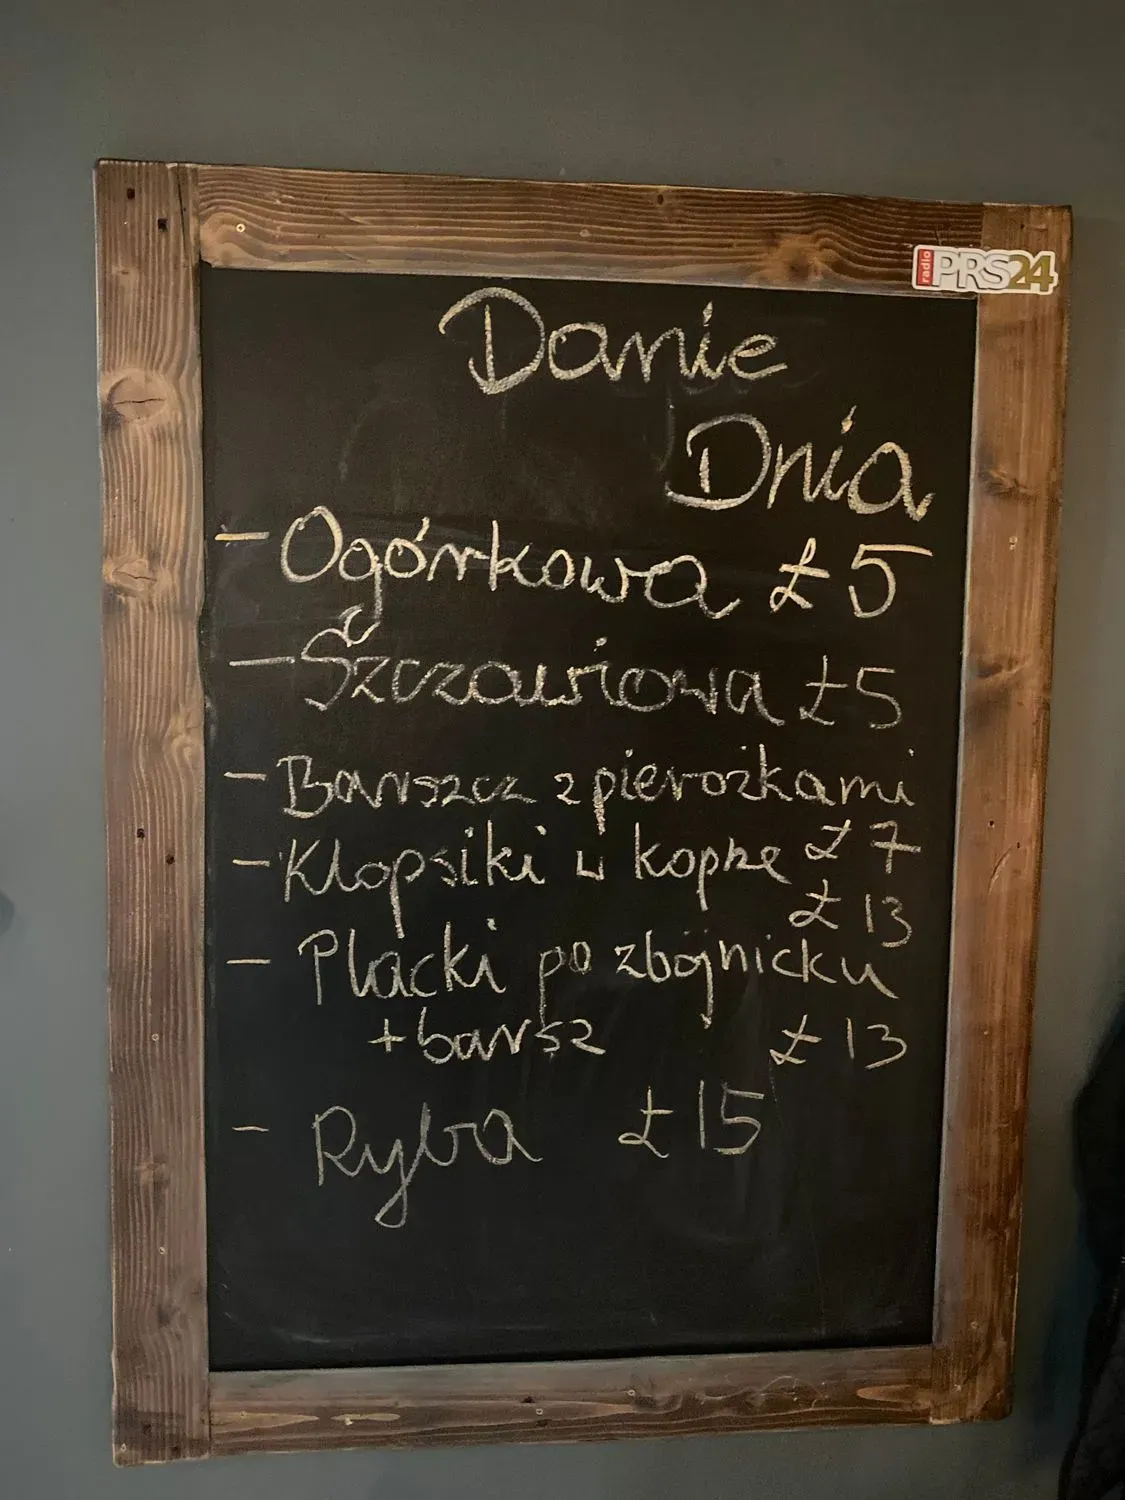 radio PRS24
Danie
Dnia
- Ogórkowa £5
- Szczawiowa £5
- Barszcz z pierożkami
£7
- Klopsiki w kopże
£13
- Placki po zbójnicku
+ barsz £13
- Ryba £15